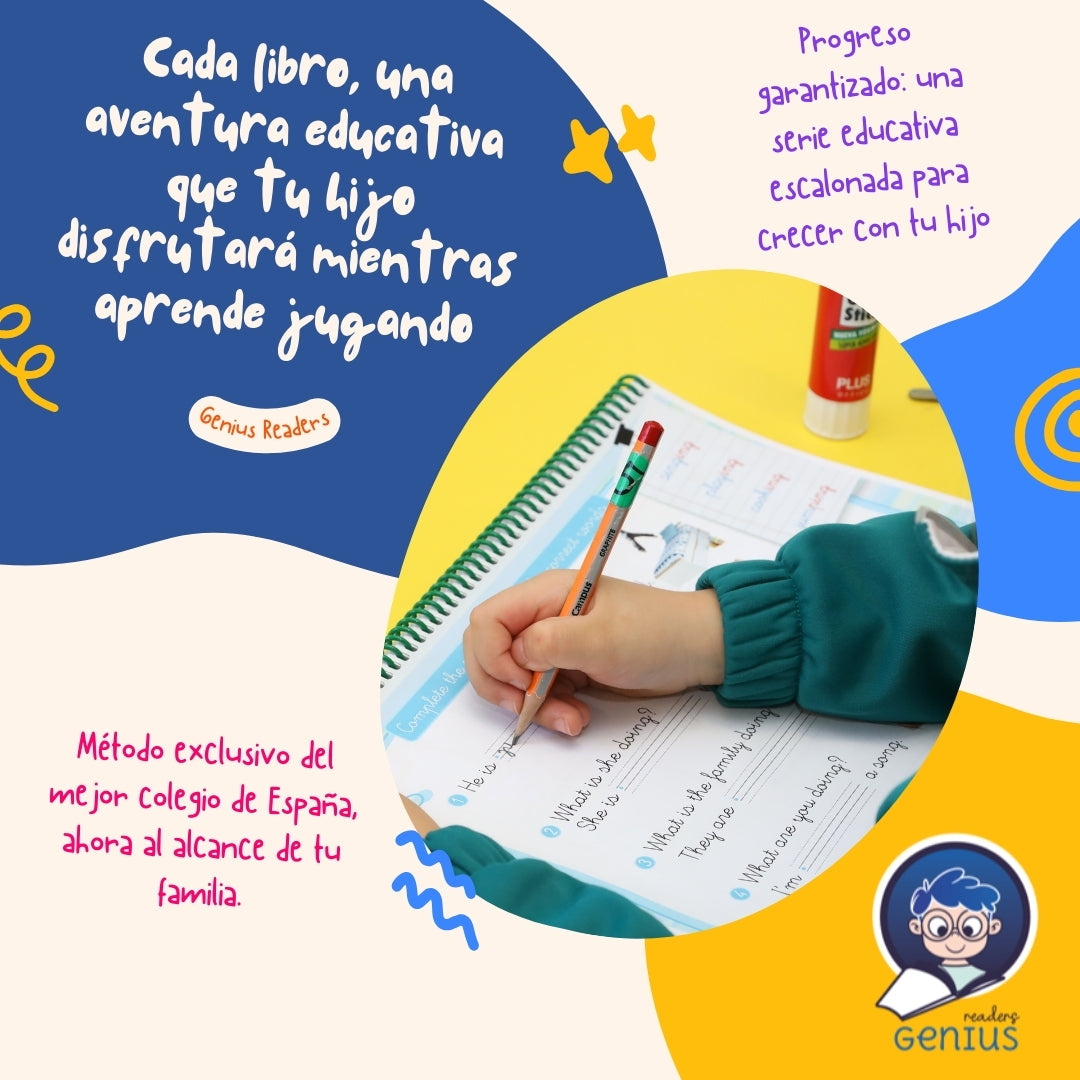 Cada libro, una
aventura educativa
que tu hijo
disfrutará mientras
aprende jugando
Genius Readers
Progreso
garantizado: una
serie educativa
escalonada para
crecer con tu hijo
Método exclusivo del
mejor colegio de España,
ahora al alcance de tu
familia.
Stic
PLUS
singing
playing
jumping
GRAPHITE
Campus
Complete the
correct words
1 He is
2 What is she doing?
She is
3 What is the family doing
They are
4 What are you doing?
I'm a song.
readers
GENIUS